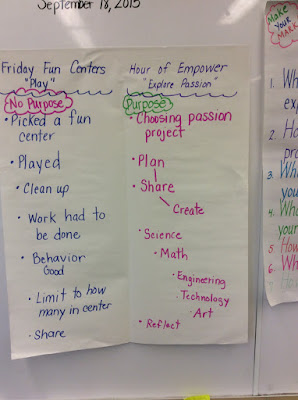 September 18, 2015
Friday Fun Centers
"Play"
No Purpose
• Picked a fun
center
• Played
• Clean up
• Work had to
be done
• Behavior
Good
• Limit to how
many in center
• Share
Hour of Empower
"Explore Passion"
Purpose
• Choosing passion
project
• Plan
• Share
Create
• Science
• Math
• Engineering
• Technology
• Art
• Reflect
Make
Your
Mark
1. Wh
exp
2. Ho
pro
3. Wh
your
4. Wh
your
5. How
6. Wh